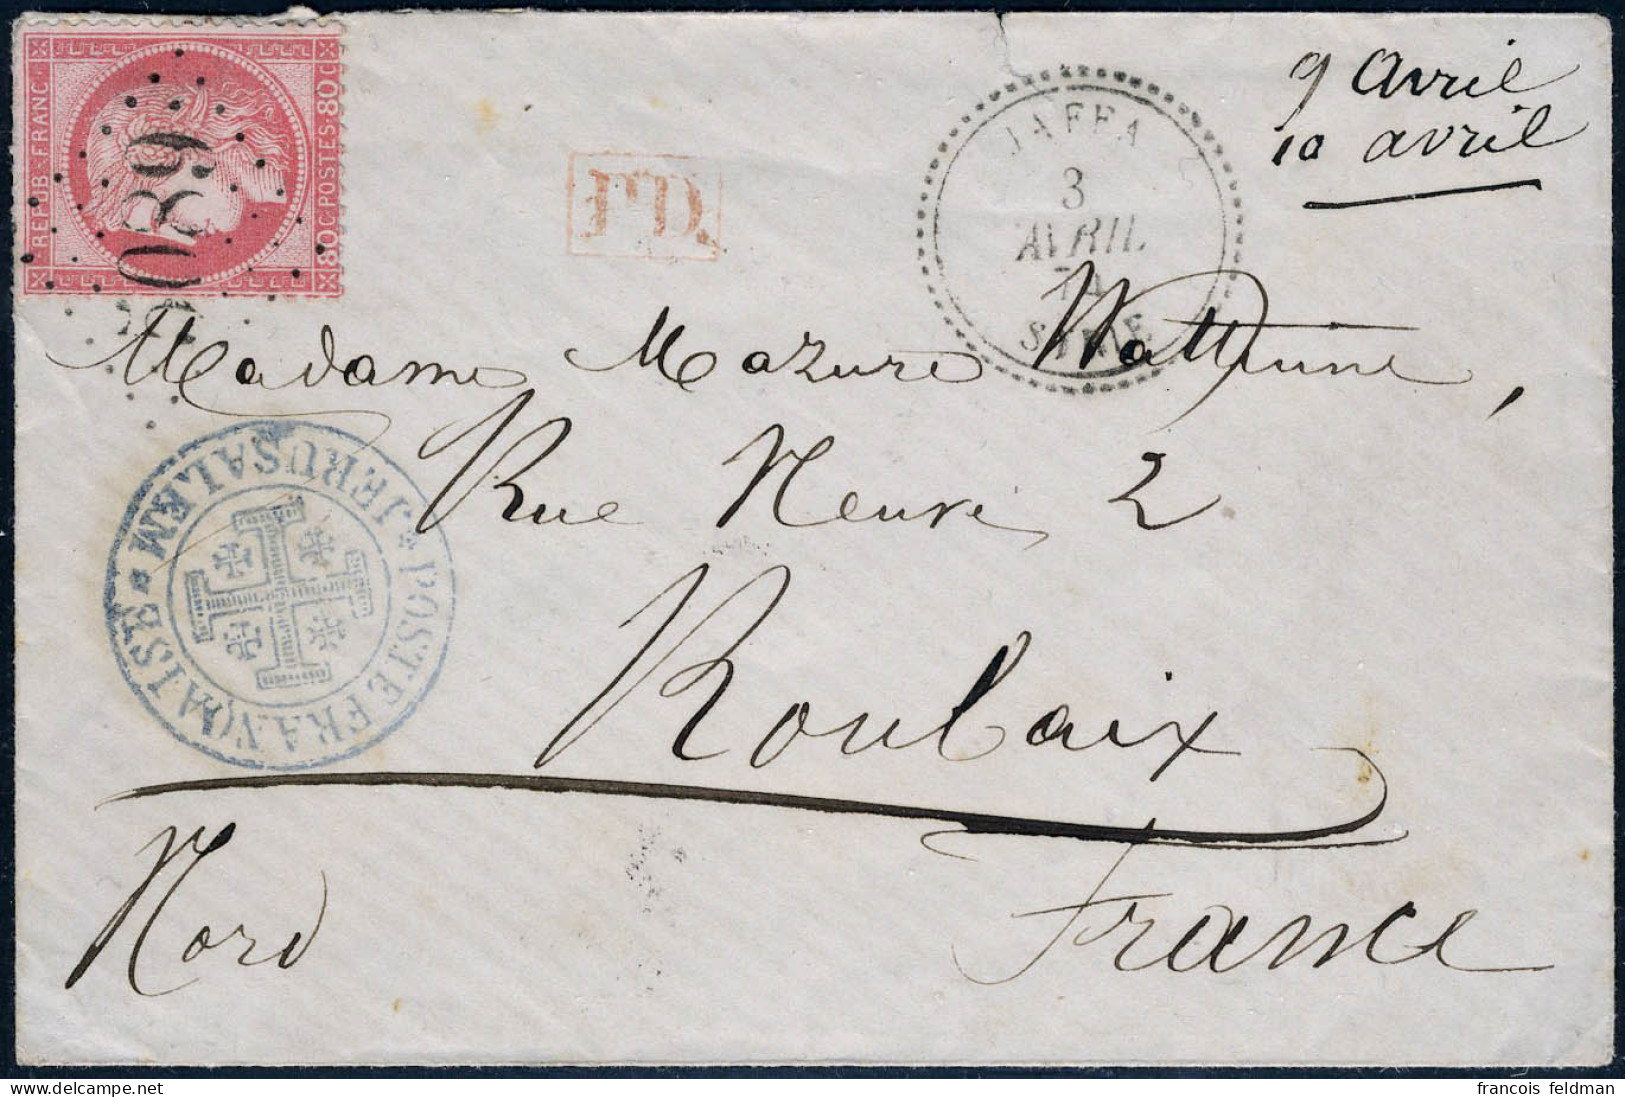 REPUB·FRANC·
80C·POSTES·80C
5089
P.D.
JAFFA
3
AVRIL
74
SYRIE
9 Avril
10 avril
Madame Mazure Wattinne,
Rue Neuve 2
Roubaix
Nord
France
* POSTE FRANÇAISE * JERUSALEM
francois feldman